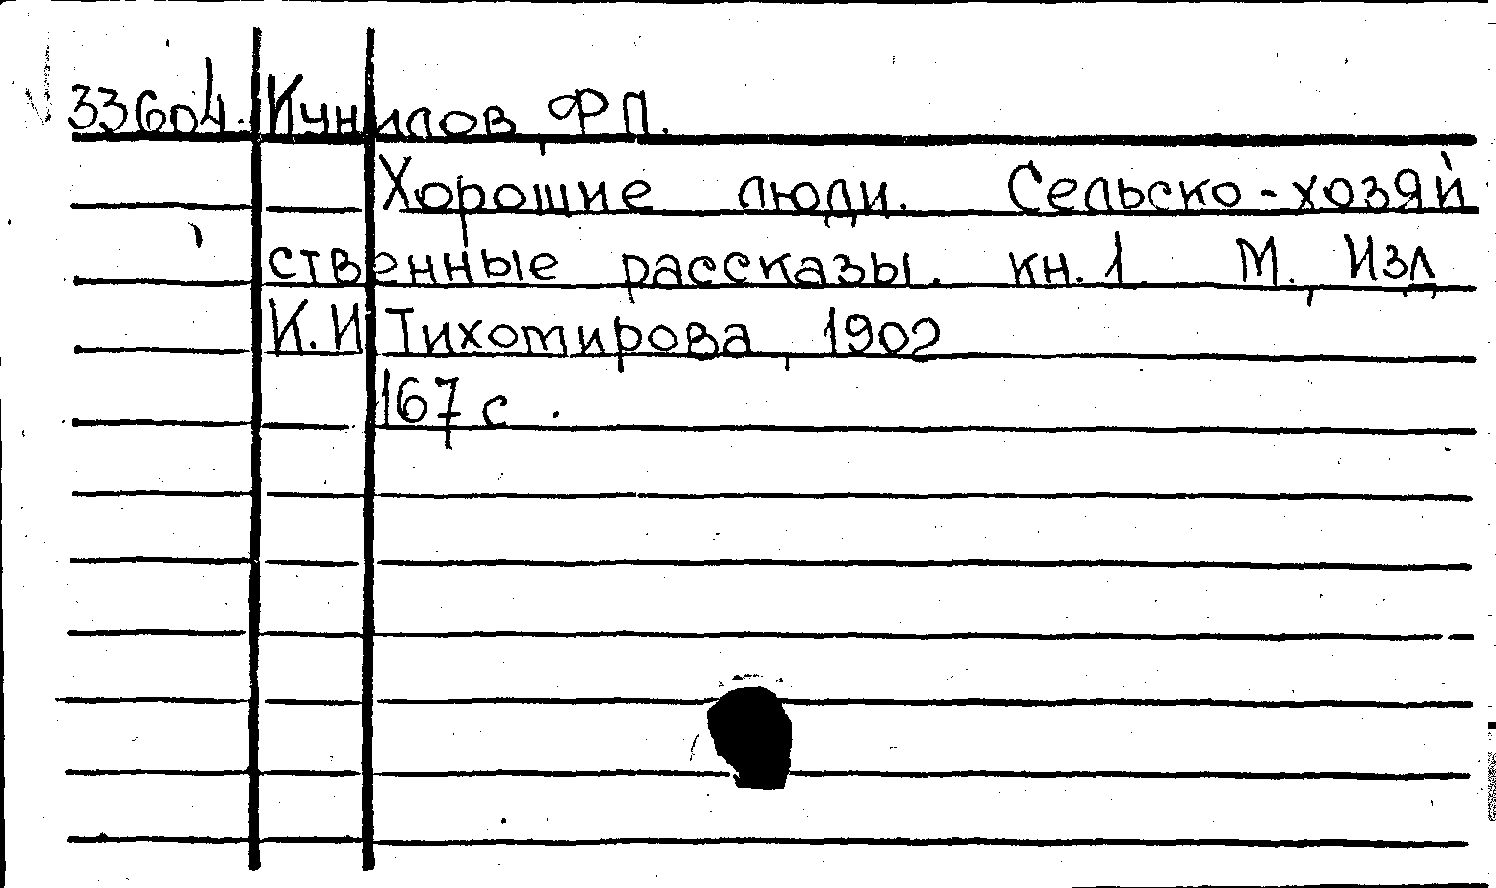 33604. Кунилов, Ф П.
Хорошие люди. Сельско-хозяй
ственные рассказы. кн. 1 М., Изд
К.И Тихомирова, 1902
167 с.